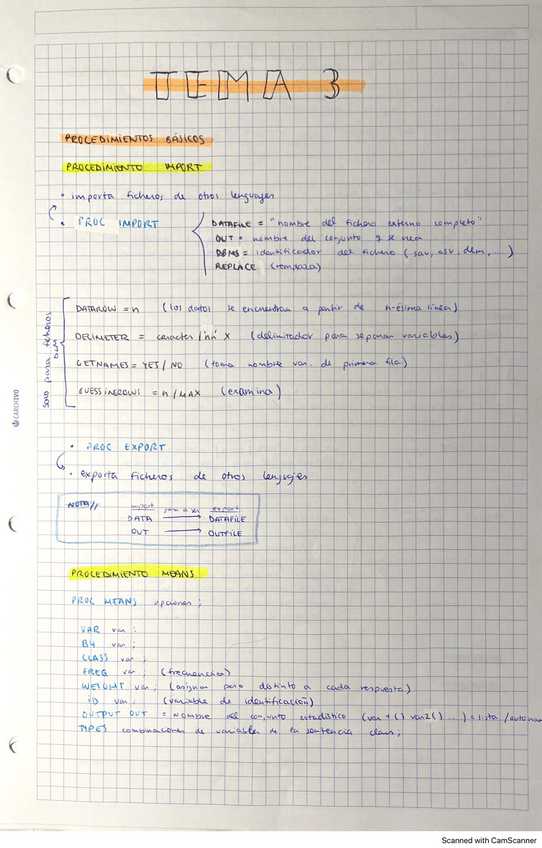 TEMA 3
PROCEDIMIENTOS BÁSICOS
PROCEDIMIENTO IMPORT
• importa ficheros de otros lenguajes
• PROC IMPORT
DATAFILE = "nombre del fichero externo completo"
OUT = nombre del conjunto q se crea
DBMS = identificador del fichero (sav, csv, dlm, ...)
REPLACE (remplaza)
solo para ficheros DLM
DATAROW = n (los datos se encuentran a partir de n-ésima línea)
DELIMETER = caracter / 'nn' X (delimitador para separar variables)
GETNAMES = YES / NO (toma nombre var. de primera fila)
GUESSINGROWS = n / MAX (examina)
• PROC EXPORT
• exporta ficheros de otros lenguajes
NOTA// import pasa a ser export
DATA → DATAFILE
OUT → OUTFILE
PROCEDIMIENTO MEANS
PROC MEANS opciones;
VAR var;
BY var;
CLASS var;
FREQ var; (frecuencias)
WEIGHT var; (asignar peso distinto a cada respuesta)
ID var; (variable de identificación)
OUTPUT OUT = nombre del conjunto estadístico (var 1 () var2 () ...) = lista /
TYPES combinaciones de variables de la sentencia class;
CARCHIVO
Scanned with CamScanner